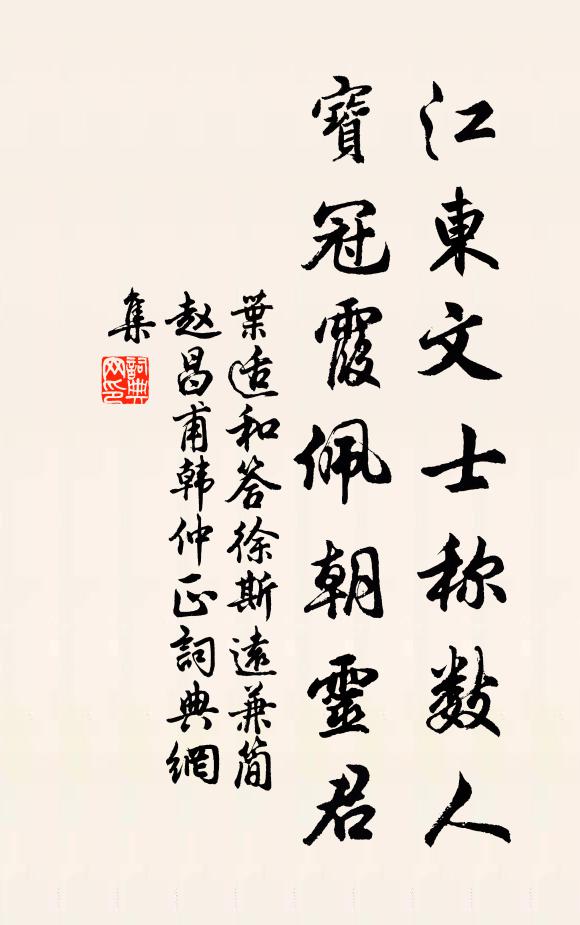 江東文士称数人
寶冠霞佩朝靈君
葉适和答徐斯遠兼简
赵昌甫韩仲正詞典網
集
詞典网印